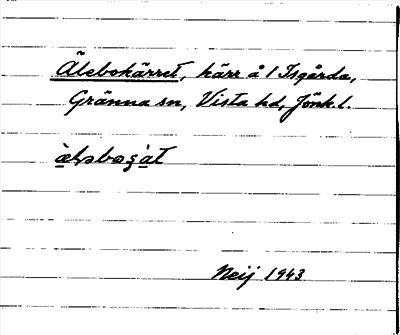 Älebokärret, kärr å 1 Isgårda,
Gränna sn, Vista hd, Jönk. l.
Neij 1943